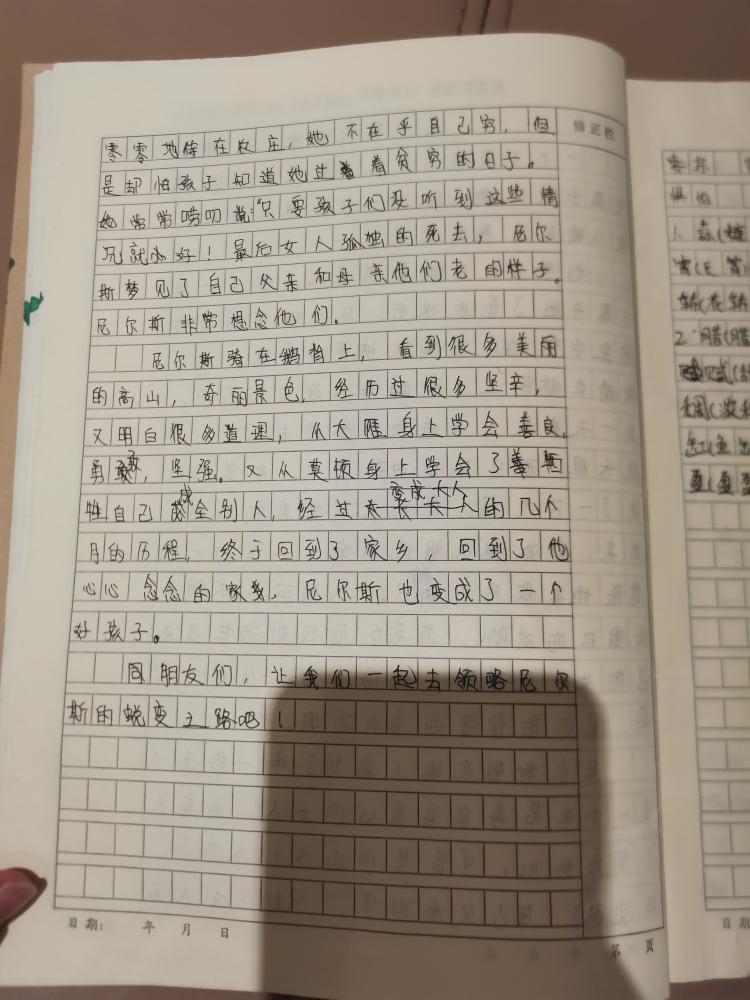 零零地待在农庄，她不在乎自己穷，但
是却怕孩子知道她过着贫穷的日子。
她常常唠叨说："只要孩子们没听到这些情
况就必好！最后女人孤独的死去，尼尔
斯梦见了自己父亲和母亲他们老的样子。
尼尔斯非常想念他们.
尼尔斯骑在鹅背上，看到很多美丽
的高山，奇丽景色，经历过很多坚辛，
又明白很多道理，从大雁身上学会善良，
勇敢，坚强。又从莫顿身上学会了
牲自己成全别人，经过变成大人的几个
月的历程，终于回到了家乡，回到了他
心心念念的家，尼尔斯也变成了一个
好孩子。
同朋友们，让我们一起去领略尼尔
斯的蜕变之路吧！
修正栏
惧怕
日期： 年 月 日
第 页
日期